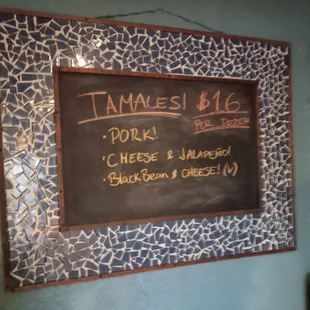 TAMALES! $16
PER DOZEN
· PORK!
· CHEESE & JALAPEÑO!
· BLACK BEAN & CHEESE! (V)